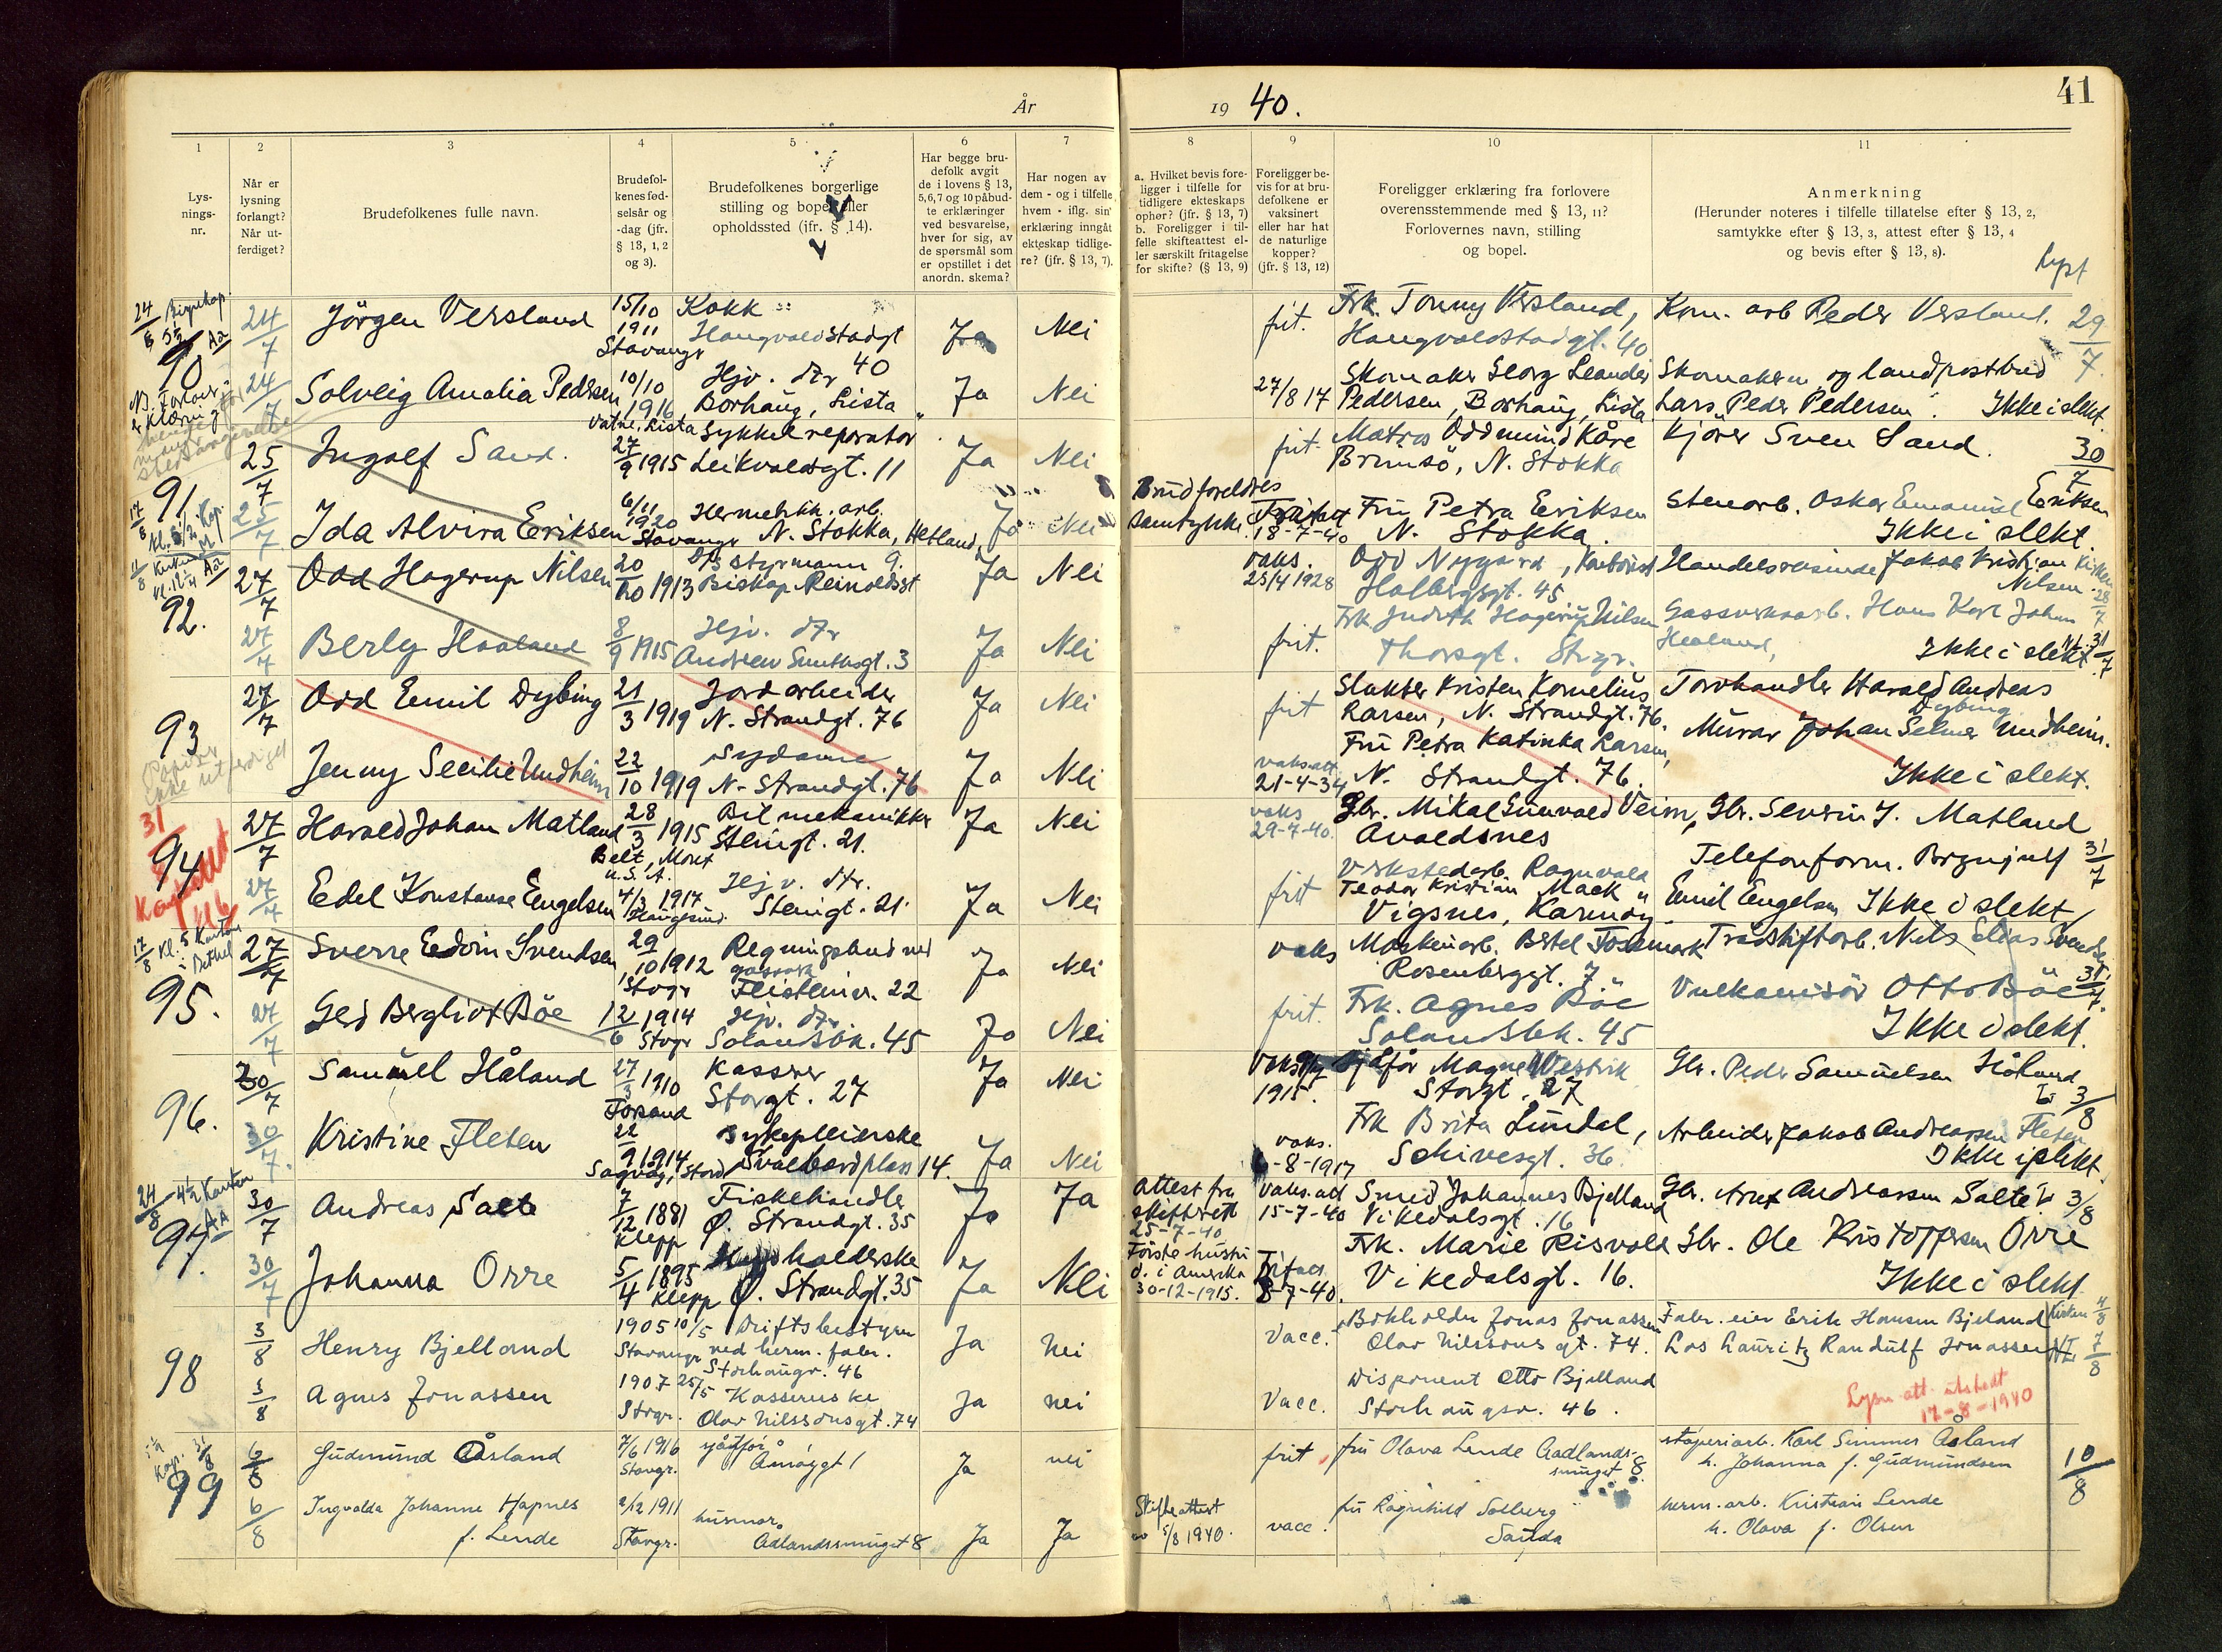 År
19 40.
41
1
2
3
4
5
6
7
8
9
10
11
Lys-
nings-
nr.
Når er
lysning
forlangt?
Når ut-
ferdiget?
Brudefolkenes fulle navn.
Brudefol-
kenes fød-
selsår og
-dag (jfr.
§ 13, 1, 2
og 3).
Brudefolkenes borgerlige
stilling og bopel eller
opholdssted (jfr. § 14).
Har begge bru-
defolk avgit
de i lovens § 13,
5,6,7 og 10 påbud-
te erklæringer
ved besvarelse,
hver for sig, av
de spørsmål som
er opstillet i det
anordn. skema?
Har nogen av
dem - og i tilfelle
hvem - iflg. sin
erklæring inngåt
ekteskap tidlige-
re? (jfr. § 13, 7).
a. Hvilket bevis fore-
ligger i tilfelle for
tidligere ekteskaps
ophør? (jfr. § 13, 7)
b. Foreligger i til-
felle skifteattest el-
ler særskilt fritagelse
for skifte? (§ 13, 9)
Foreligger be-
vis for at bru-
defolkene er
vaksinert
eller har hat
de naturlige
kopper?
(jfr. § 13, 12)
Foreligger erklæring fra forlovere
overensstemmende med § 13, 11?
Forlovernes navn, stilling
og bopel.
Anmerkning
(Herunder noteres i tilfelle tillatelse efter § 13, 2,
samtykke efter § 13, 3, attest efter § 13, 4
og bevis efter § 13, 8).
Lyst
90
24/7 Jörgen Versland 15/10 1911 Stavanger Kokk
Haugvaldstadgt 40 Ja Nei
frit. Frk. Tonny Versland,
Haugvaldstadgt. 40
Kom. arb Peder Versland. 29/7
24/7 Solveig Amalia Pedersen 10/10 1916 Vatne, Lista Hjv. dtr
Borhaug, Lista Ja Nei
27/8 17 Skomaker Georg Leander
Pedersen, Borhaug, Lista
Skomaker og landpostbud
Lars Peder Pedersen. Ikke i slekt.
91
25/7 Ingolf Sand. 27/9 1915 Sykkelreparatør
Leikvoldsgt. 11 Ja Nei
frit. Matros Oddmund Kåre
Brimsö, N. Stokka
Kjører Sven Sand. 30/7
25/7 Ida Alvira Eriksen 6/11 1920 Stavanger Hermetikk. arb.
N. Stokka, Hetland Ja Nei
Brudforeldres
samtykke.
18-7-40
Fru Petra Eriksen
N. Stokka.
Stenarb. Oskar Emanuel Eriksen
Ikke i slekt.
92.
27/7 Odd Hagerup Nilsen 20/10 1913 Styrmann
Biskop Reinoldsgt 9. Ja Nei
vaks. 25/4 1928 Odd Nygård, Kontorist
Holbergsgt. 45
Handelsreisende Jakob Kristian
Nilsen
27/7 Berly Haaland 8/9 1915 Hjv. dtr
Andreas Smithsgt. 3 Ja Nei
frit. Frk Judith Hagerup Nilsen
Thorsgt. Stvgr.
Gassverksarb. Hans Karl Johan
Haaland,
Ikke i slekt. 31/7
93
27/7 Odd Emil Dybing 21/3 1919 Jordarbeider
N. Strandgt. 76 Ja Nei
frit Slakter Kristen Kornelius
Larsen, N. Strandgt. 76.
Torvhandler Harald Andreas
Dybing
Jenny Secilie Undheim 22/10 1919 Sydame
N. Strandgt. 76 Ja Nei
vaks. att. 21-4-34 Fru Petra Katinka Larsen,
N. Strandgt. 76.
Murar Johan Selmer Undheim.
Ikke i slekt.
31/8
94.
Kontoret
kl 6
27/7 Harald Johan Matland 28/3 1915 Belt, Mont U.S.A. Bilmekanikker
Steingt. 21. Ja Nei
vaks 29-7-40. Gbr. Mikal Gunvald Veim,
Avaldsnes
Gbr. Severin J. Matland
27/7 Edel Konstanse Engelsen 4/3 1917 Haugesund. Hjv. dtr.
Steingt. 21. Ja Nei
frit Verkstedarb. Ragnvald
Teodor Kristian Mack
Vigsnes, Karmöy
Telefonform. Brynjulf 31/7
Emil Engelsen Ikke i slekt
95.
27/7 Sverre Edvin Svendsen 29/10 1912 Stvgr Regningsbud ved
gassverk
Flisteinv. 22 Ja Nei
vaks Maskinarb. Bertel Fossmark
Rosenberggt. 7.
Trådstiftarb. Nils Elias Svendsen
27/7 Gerd Bergliot Böe 12/6 1914 Stvgr Hjv. dtr.
Solandsbk. 45 Ja Nei
frit. Frk. Agnes Böe
Solandsbk. 45
Vulkanisör Otto Böe 31/7
Ikke i slekt.
96.
30/7 Samuel Håland 27/3 1910 Forsand Kasserer
Storgt. 27 Ja Nei
1915. Magne Westvik
Storgt. 27
Gbr. Peder Samuelsen Håland
3/8
30/7 Kristine Fleten 22/9 1914 Sagvåg, Stord Sykepleierske
Svalbardplass 14. Ja Nei
vaks. 6-8-1917 Frk Brita Lundal,
Schivesgt. 36.
Arbeider Jakob Andreassen Fleten
Ikke i slekt.
24/8 4½ Kontor
97.
30/7 Andreas Salte 7/12 1881 Klepp Fiskehandler
Ø. Strandgt. 35 Ja Ja
Attest fra
skifterett
25-7-40
Vaks. att 15-7-40 Smed Johannes Bjelland
Vikedalsgt. 16
Gbr. Arnt Andreassen Salte 3/8
30/7 Johanna Orre 5/4 1895 Klepp Husholderske
Ø. Strandgt. 35 Ja Nei
Første hustru
d. i Amerika
30-12-1915.
8-7-40. Frk. Marie Risvold
Vikedalsgt. 16.
Gbr. Ole Kristoffersen Orre
Ikke i slekt
98
3/8 Henry Bjelland 1905 10/5 Stavanger Driftsbestyrer
ved herm. fabr.
Storhaugv. 46 Ja Nei
Vacc. Bokholder Jonas Jonassen
Olav Nilssons gt. 74.
Fabr. eier Erik Hansen Bjelland Kirken 4/8
3/8 Agnes Jonassen 1907 25/5 Stvgr. Kassererske
Olav Nilssonsgt. 74 Ja nei
Vacc. Disponent Otto Bjelland
Storhaugsv. 46.
Los Lauritz Randulf Jonassen 7/8
Lysn. att. utstedt
17-8-1940
99
6/8 Gudmund Åsland 7/6 1916 Stavgr. sjåffør
Åmöygt 1 Ja nei
frit fru Olava Lende Aadlands-
smuget 8.
støperiarb. Karl Simmer Åsland
h. Johanna f. Gudmundsen
10/8
6/8 Ingvalda Johanne Hapnes
f. Lende 2/12 1911 Stavgr. husmor
Ådlandssmuget 8 Ja Ja
Skifteattest
av 5/8 1940.
vacc. fru Ragnhild Solberg
Sauda
herm. arb. Kristian Lende
h. Olava f. Olsen